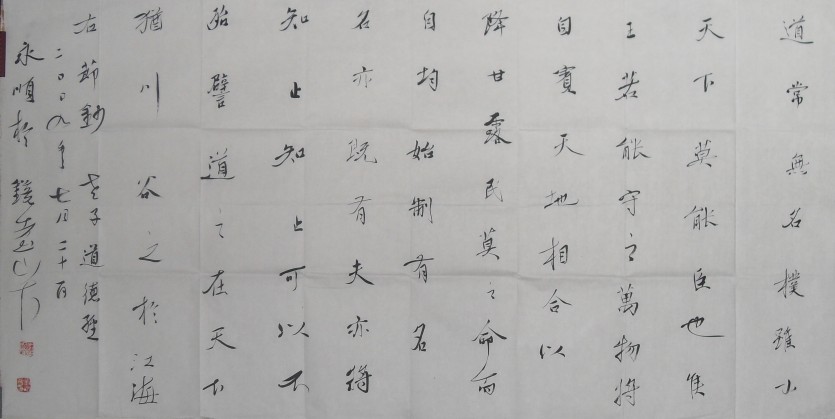 道常無名樸雖小
天下莫能臣也侯
王若能守之萬物將
自賓天地相合以
降甘露民莫之命而
自均始制有名
名亦既有夫亦將
知止知止可以不
殆譬道之在天下
猶川谷之於江海
右節鈔老子道德經
二〇〇九年七月二十日
永順於